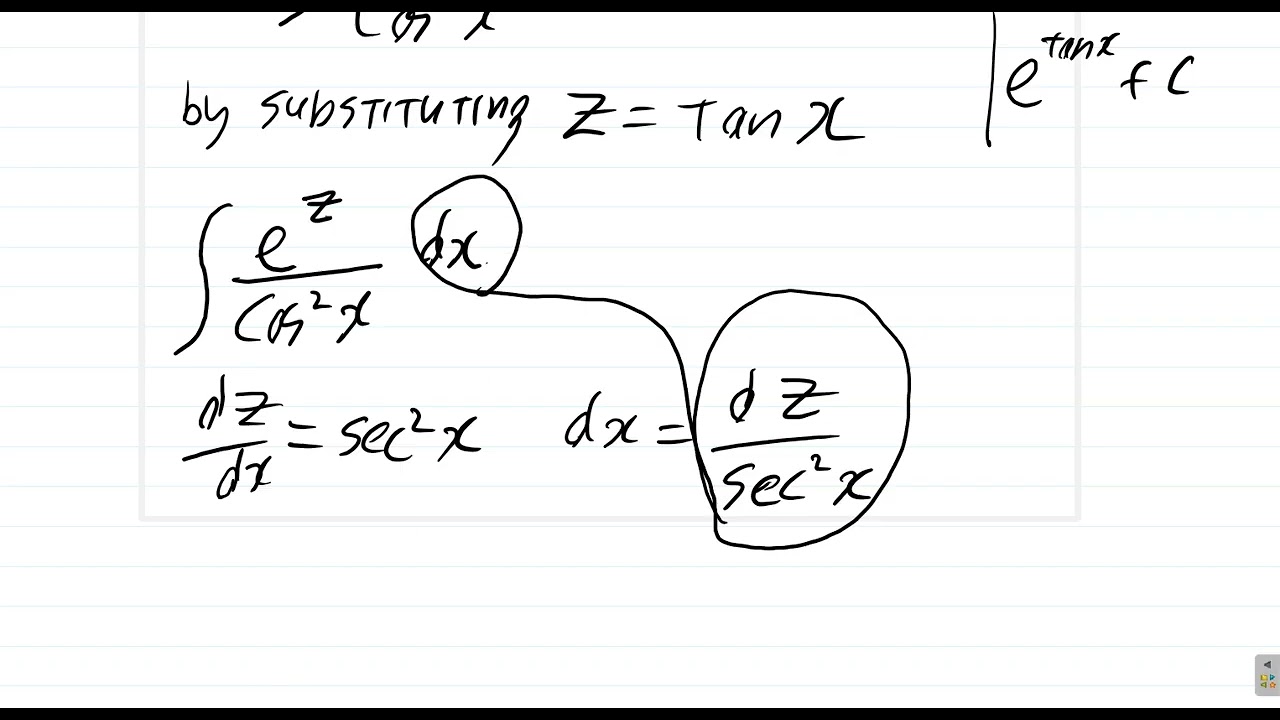 Cos x
e^{tan x} + C
by substituting z = tan x
∫ e^z / cos²x dx
dz/dx = sec²x    dx = dz / sec²x